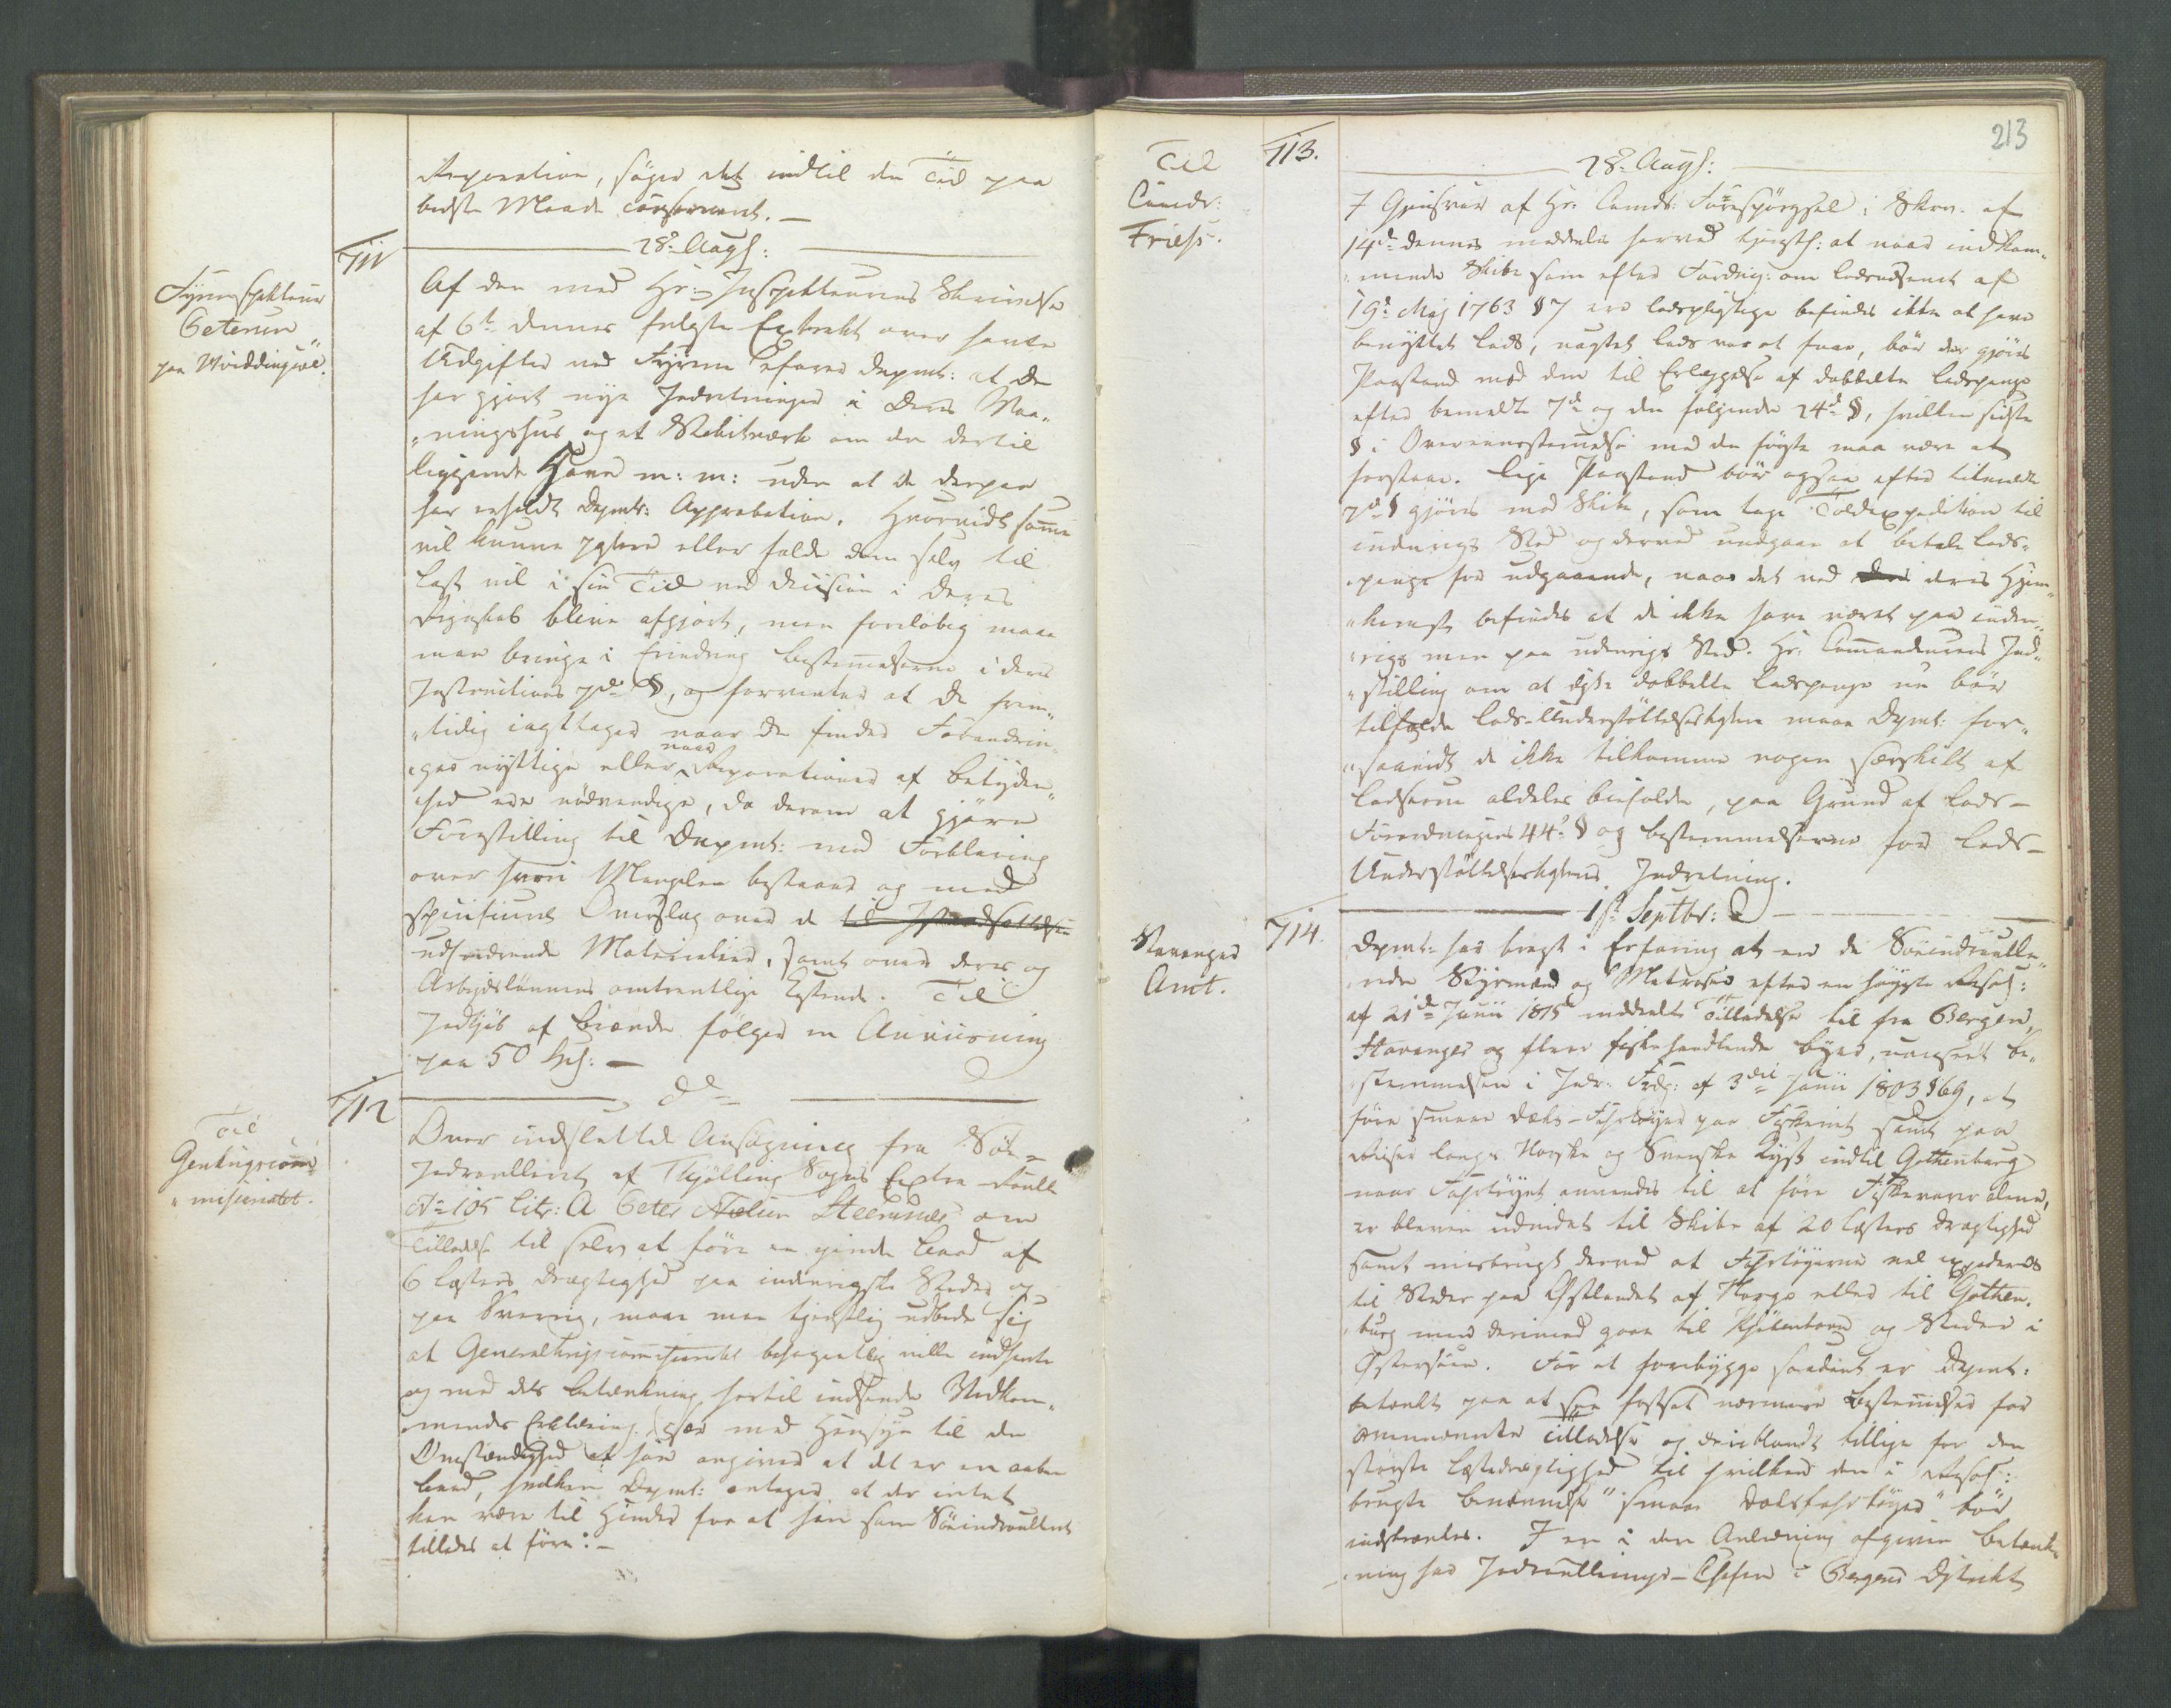 Reparation, søges det indtil den Tid paa
bedste Maade conserveret. —
711
28de Augst:
Fyrinspekteur
Petersen
paa Hviddingsøe.
Af den med Hr: Inspekteurens Skrivelse
af 6te dennes fulgte Extrakt over havte
Udgifter ved Fyrene erfarer Depmt: at De
har gjort nye Indretninger i Deres Vaa„
„ningshus og et Stakitværk om den dertil
liggende Have m: m: uden at De derpaa
har erholdt Depmts: Approbation. Hvorvidt samme
vil kunne passere eller falde dem selv til
Last vil i sin Tid ved Decision i Deres
Regnskab blive afgjort, men foreløbig maae
man bringe i Erindring Bestemmelserne i deres
Instructions 7de §, og forventer at De frem„
„tidig iagttager naar De finder Forandrin„
„ger nyttige eller naar Reparationer af Betyden„
„hed ere nødvendige, da derom at gjøre
Forestilling til Depmt: med Forklaring
over hvori Manglen bestaaer og med
specificeret Overslag over de til Istandsættelsen
udfordrende Materialier, samt over deres og
Arbeidslønnens omtrentlige Kostende. Til
Indkjøb af Brænde følger en Anviisning
paa 50 Sps: —
712
do
Til
Genkrigscom„
„missariatet.
Over indsluttede Ansøgning fra Søe-
Indroulleret af Thjølling Sogns Extra-Roulle
No 105 Litr: A Peter Nielsen Steensnes om
Tilladelse til selv at føre en eiende Baad af
6 Læsters Drægtighed paa indenrigske Steder og
paa Sverrig, maae man tjenstlig udbede sig
at Generalkrigscommissariatet behageligen ville indhente
og med dets Betænkning hertil indsende Vedkom„
„mendes Erklæring, især med Hensyn til den
Omstændighed at han angiver at det er en aaben
Baad, hvilken Depmt: antager at der intet
kan være til Hinder for at han som Søeindroulleret
tillades at føre: —
213
Til
Comdr:
Friess.
713.
28de Augst:
I Gjensvar af Hr. Comdr: Forespørgsel i Skriv. af
14de dennes meddeles herved tjenstl: at naar indkom„
„mende Skibe som efter Fordng: om Lodsvæsenet af
19de Maj 1763 § 7 ere lodspligtige befindes ikke at have
benyttet Lods, uagtet Lods var at faae, bør der gjøres
Paastand mod dem til Erlæggelse af dobbelte Lodspenge
efter bemeldte 7de og den følgende 24de §, hvilken sidste
§ i Overeensstemmelse med den første maa være at
forstaae. Lige Paastand bør ogsaa efter bemeldte
7de § gjøres mod Skibe, som tage Toldexpedition til
indenrigs Sted og derved undgaae at betale Lods„
„penge for udgaaende, naar det ved deres Hjem„
„komst befindes at de ikke have været paa inden„
„rigs men paa udenrigs Sted. Hr. Commandeurens Ind„
„stilling om at disse dobbelte Lodspenge nu bør
tilfalde Lods-Understøttelseskassen maae Depmt: for„
„saavidt de ikke tilkomme nogen særskilt af
Lodserne aldeles bifalde, paa Grund af Lods-
Forordningens 44de § og Bestemmelserne for Lods-
Understøttelseskassens Indretning.
1ste Septbr:
Stavanger
Amt.
714.
Depmt: har bragt i Erfaring at en de Søeindroulle„
„rede Styrmænd og Matroser efter en høyeste Resol:
af 21de Junii 1815 meddeelt Tilladelse til fra Bergen,
Stavanger og flere fiskehandlende Byer, uanseet Be„
„stemmelsen i Indr: Frdg: af 3die Junii 1803 § 69, at
føre smaae Dæks-Fahrtøyer paa Fiskeriet samt paa
Reiser langs Norske og Svenske Kyst indtil Gothenburg
naar Fahrtøyet anvendes til at føre Fiskevarer alene,
er bleven udvidet til Skibe af 20 Læsters Drægtighed
samt misbrugt derved at Fahrtøyerne vel expederes
til Steder paa Østlandet af Norge eller til Gothen„
„burg men derimod gaae til Kjøbenhavn og Steder i
Østersøen. For at forebygge saadant er Depmt:
betænkt paa at faae fastsat nærmere Bestemmelser for
ovennævnte Tilladelse og deriblandt tillige for den
største Læstedrægtighed til hvilken den i Resol:
brugte Benævnelse "smaae Dæksfahrtøyer" bør
indskrænkes. I en i den Anledning afgiven Betænk„
„ning har Indroullerings-Chefen i Bergens District